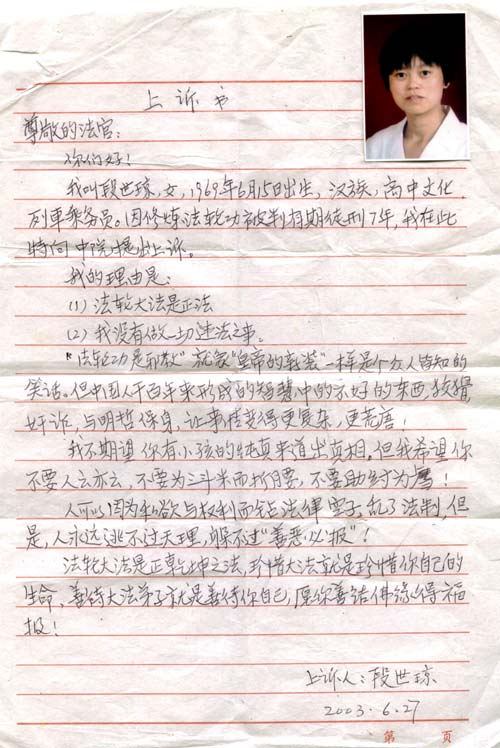 上诉书
尊敬的法官：
你们好！
我叫段世琼，女，1969年6月15日出生，汉族，高中文化，
列車乘务员。因修炼法轮功被判有期徒刑7年，我在此
特向中院提出上诉。
我的理由是：
(1) 法轮大法是正法
(2) 我没有做一切违法之事。
"法轮功是邪教"就象"皇帝的新装"一样是个众人皆知的
笑话。但中国人千百年来形成的智慧中的不好的东西，狡猾
奸诈，与明哲保身，让事情变得更复杂，更荒唐！
我不期望你有小孩的纯真来道出真相，但我希望你
不要人云亦云，不要为三斗米而折腰，不要助纣为虐！
人可以因为私欲与权利而钻法律空子，乱了法制，但
是，人永远逃不过天理，躲不过"善恶必报"！
法轮大法是正乾坤之法，珍惜大法就是珍惜你自己的
生命、善待大法弟子就是善待你自己，愿你善结佛缘得福
报！
上诉人：段世琼
2003.6.27
第 页